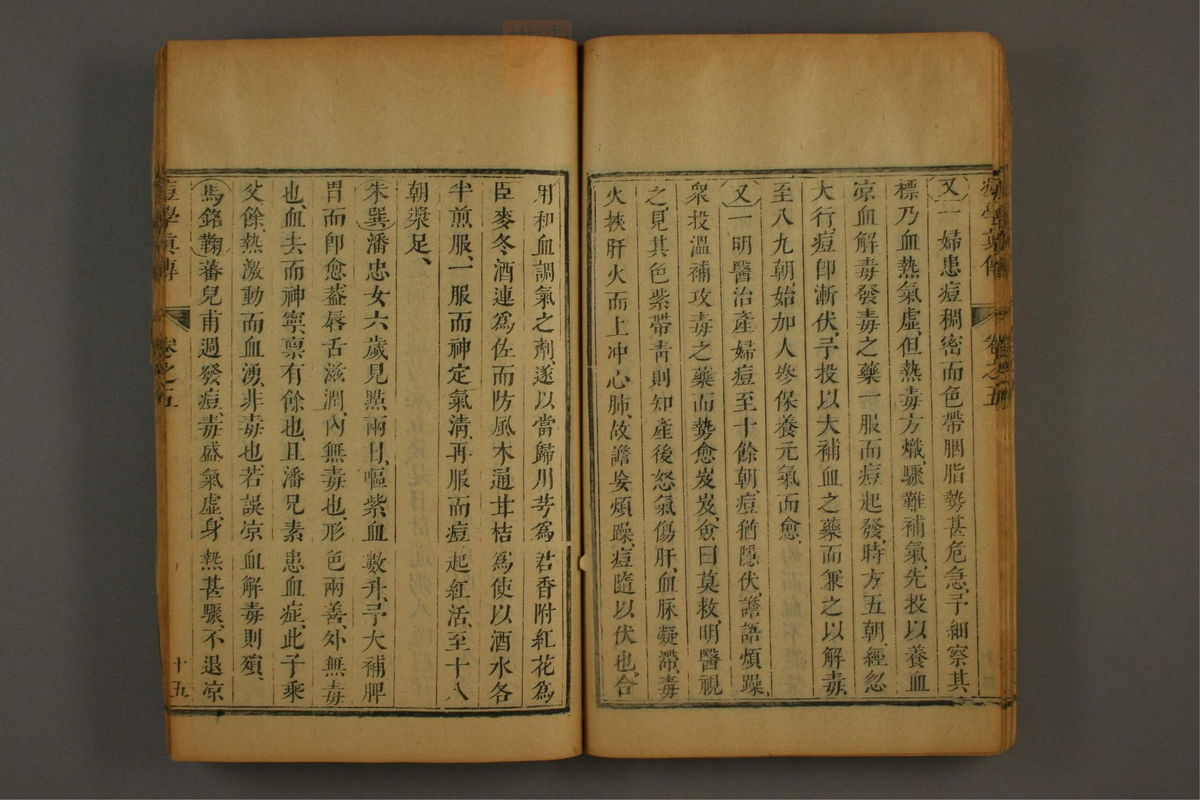 痘學真傳 卷之五
又一婦患痘稠密而色帶胭脂勢甚危急予細察其
標乃血熱氣虛但熱毒方熾驟難補氣先投以養血
凉血解毒發毒之藥一服而痘起發時方五朝經忽
大行痘卽漸伏予投以大補血之藥而兼之以解毒
至八九朝始加人參保養元氣而愈
又一明醫治產婦痘至十餘朝痘猶隱伏譫語煩躁
衆投溫補攻毒之藥而勢愈岌岌僉曰莫救明醫視
之見其色紫帶青則知產後怒氣傷肝血脉凝滯毒
火挾肝火而上冲心肺故譫妄煩躁痘隨以伏也合
用和血調氣之劑遂以當歸川芎爲君香附紅花爲
臣麥冬酒連爲佐而防風木通甘桔爲使以酒水各
半煎服一服而神定氣清再服而痘起紅活至十八
朝漿足
朱巽潘忠女六歲見點兩日嘔紫血數升予大補脾
胃而卽愈葢唇舌滋潤內無毒也形色兩善外無毒
也血去而神寧禀有餘也且潘兄素患血症此子乘
父餘熱激動而血湧非毒也若誤凉血解毒則殞
馬銘鞠蕃兒甫週發痘毒盛氣虛身熱甚驟不退凉
痘學真傳 卷之五 十五